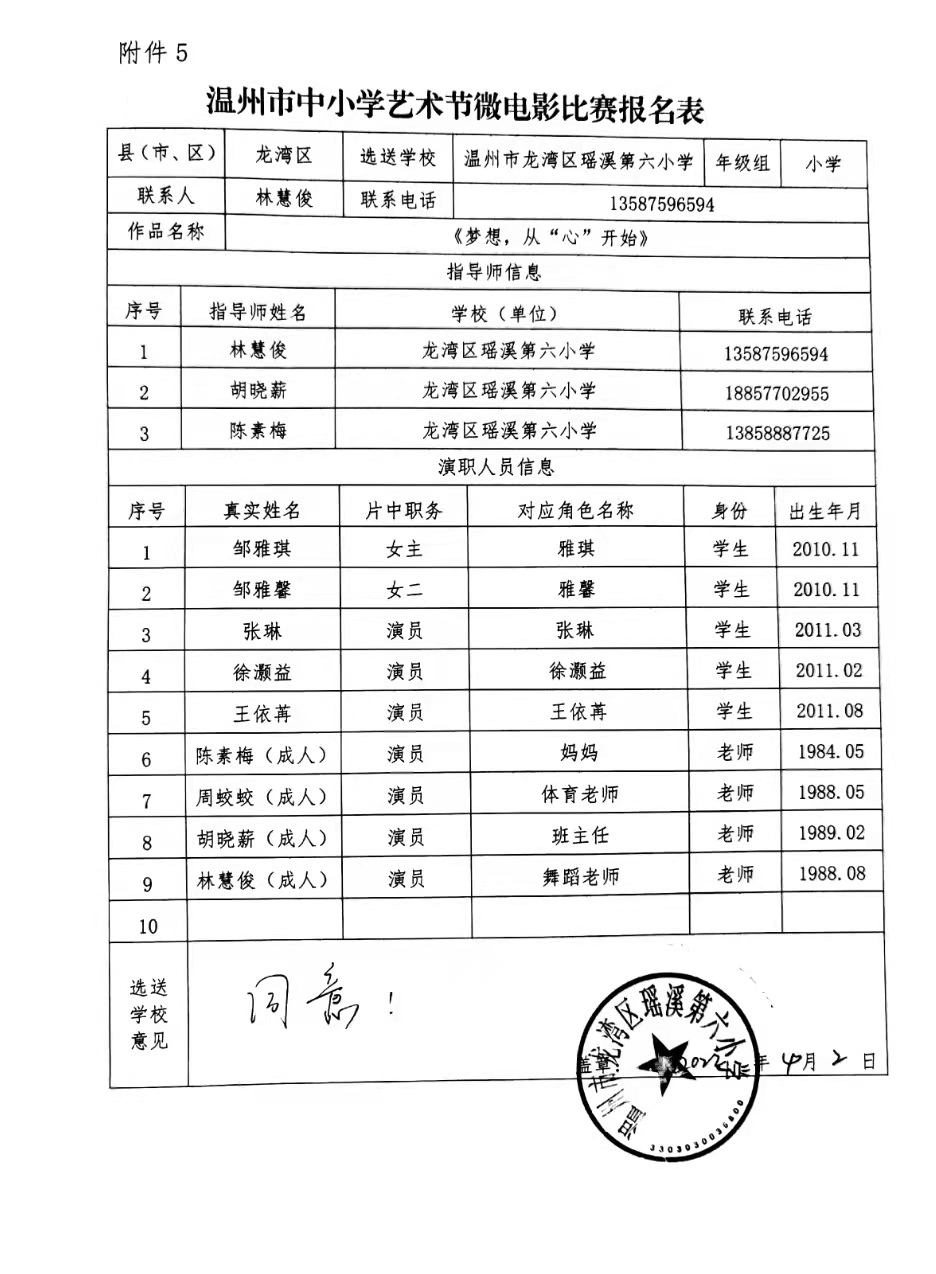 附件 5
温州市中小学艺术节微电影比赛报名表
县（市、区） 龙湾区 选送学校 温州市龙湾区瑶溪第六小学 年级组 小学
联系人 林慧俊 联系电话 13587596594
作品名称 《梦想，从“心”开始》
指导师信息
序号 指导师姓名 学校（单位） 联系电话
1 林慧俊 龙湾区瑶溪第六小学 13587596594
2 胡晓薪 龙湾区瑶溪第六小学 18857702955
3 陈素梅 龙湾区瑶溪第六小学 13858887725
演职人员信息
序号 真实姓名 片中职务 对应角色名称 身份 出生年月
1 邹雅琪 女主 雅琪 学生 2010.11
2 邹雅馨 女二 雅馨 学生 2010.11
3 张琳 演员 张琳 学生 2011.03
4 徐灏益 演员 徐灏益 学生 2011.02
5 王依苒 演员 王依苒 学生 2011.08
6 陈素梅（成人） 演员 妈妈 老师 1984.05
7 周蛟蛟（成人） 演员 体育老师 老师 1988.05
8 胡晓薪（成人） 演员 班主任 老师 1989.02
9 林慧俊（成人） 演员 舞蹈老师 老师 1988.08
10
选送
学校
意见
同意！
温州市龙湾区瑶溪第六小学
盖章： 年 4月 2 日